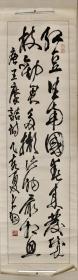 紅豆生南國春來發幾
枝勸君多採擷此物最相思
唐王摩詰詩